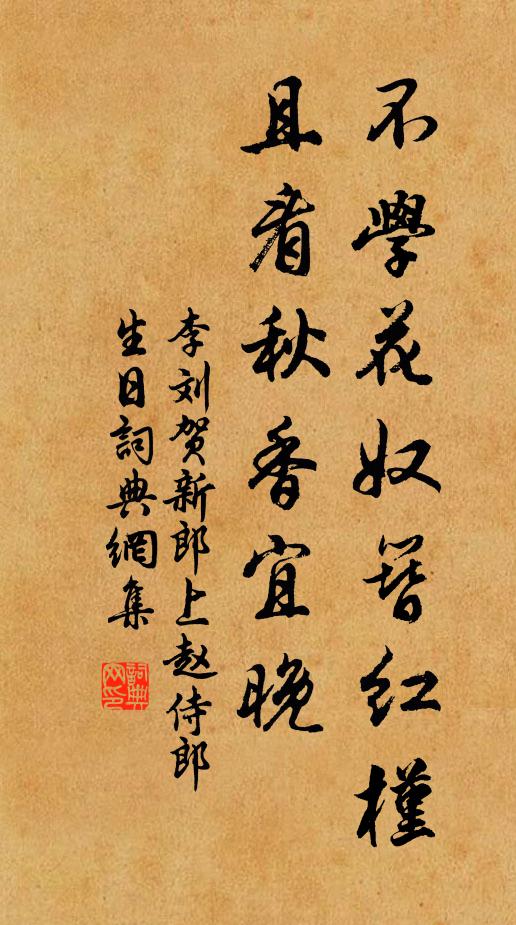 不學花奴簪红槿
且看秋香宜晚
李刘贺新郎上赵侍郎
生日詞典網集
詞典网印